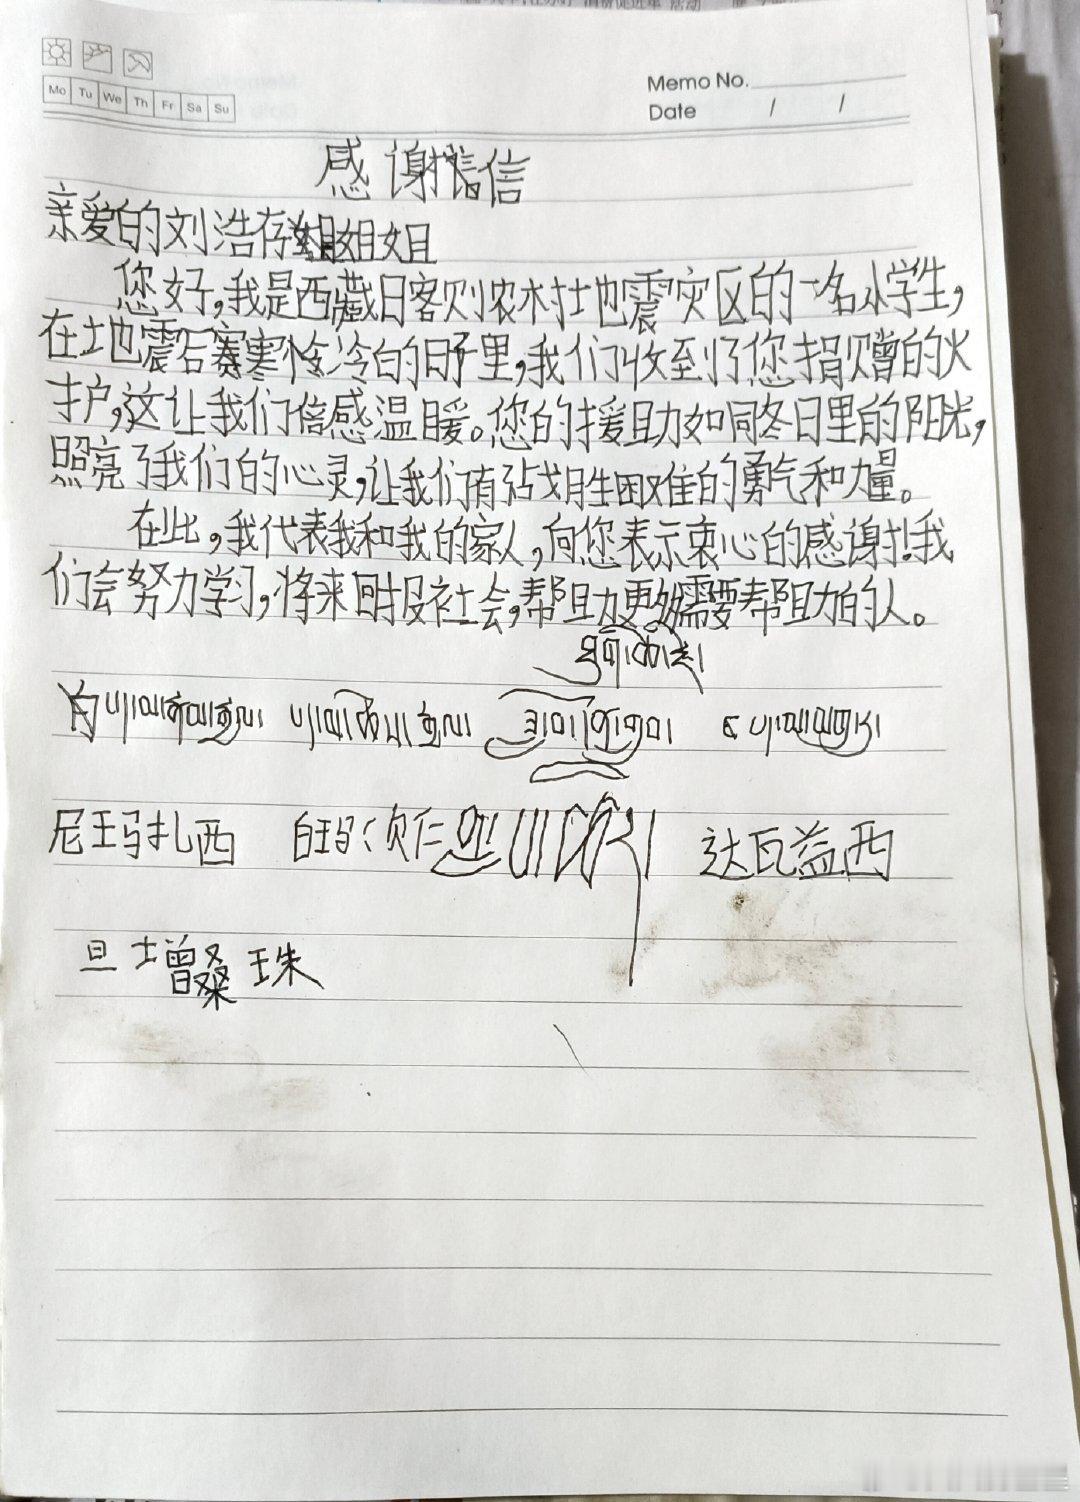 Memo No.
Mo Tu We Th Fr Sa Su
Date / /
感谢信
亲爱的刘浩存姐姐
您好,我是西藏日客则农村地震灾区的一名小学生,
在地震后寒冷的日子里,我们收到了您捐赠的火
炉,这让我们倍感温暖。您的援助如同冬日里的阳光,
照亮了我们的心灵,让我们有了战胜困难的勇气和力量。
在此,我代表我和我的家人,向您表示衷心的感谢!我
们会努力学习,将来回报社会,帮助更多需要帮助的人。
尼玛扎西 白玛次仁 达瓦益西
旦增桑珠